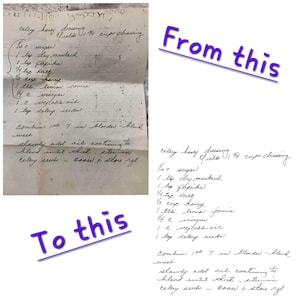 celery honey dressing
yields 1 3/4 cups dressing
c sugar
1 tsp dry mustard
1 tsp paprika
tsp salt
cup honey
1 lemon
c vinegar
1 c oil
1 tsp celery seeds
combine 1st 7 in blender - blend
well
slowly add oil continuing to
blend until thick, stir in
celery seeds - cover & store
From this
To this
celery honey dressing
yields 1 3/4 cups dressing
c sugar
1 tsp dry mustard
1 tsp paprika
tsp salt
cup honey
1 lemon
c vinegar
1 c oil
1 tsp celery seeds
combine 1st 7 in blender - blend
well
slowly add oil continuing to
blend until thick, stir in
celery seeds - cover & store